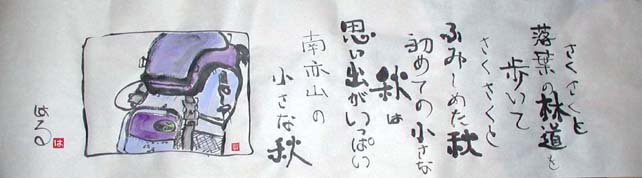 さくさくと
落葉の林道を
歩いて
さくさくと
ふみしめた秋
初めての小さな
秋は
思い出がいっぱい
南亦山の
小さな秋
はる
は